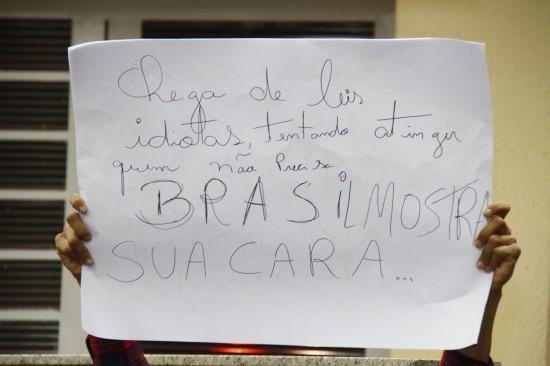 Chega de leis
idiotas, tentando atingir
quem não precisa
BRASIL MOSTRA
SUA CARA...